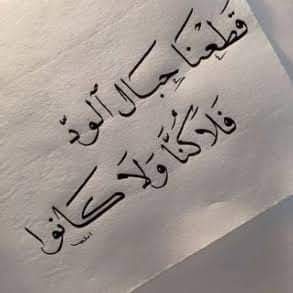 قَطَعْنَا حِبَالَ ٱلوِدّ
فَلَا كُنَّا وَلَا كَانُوا